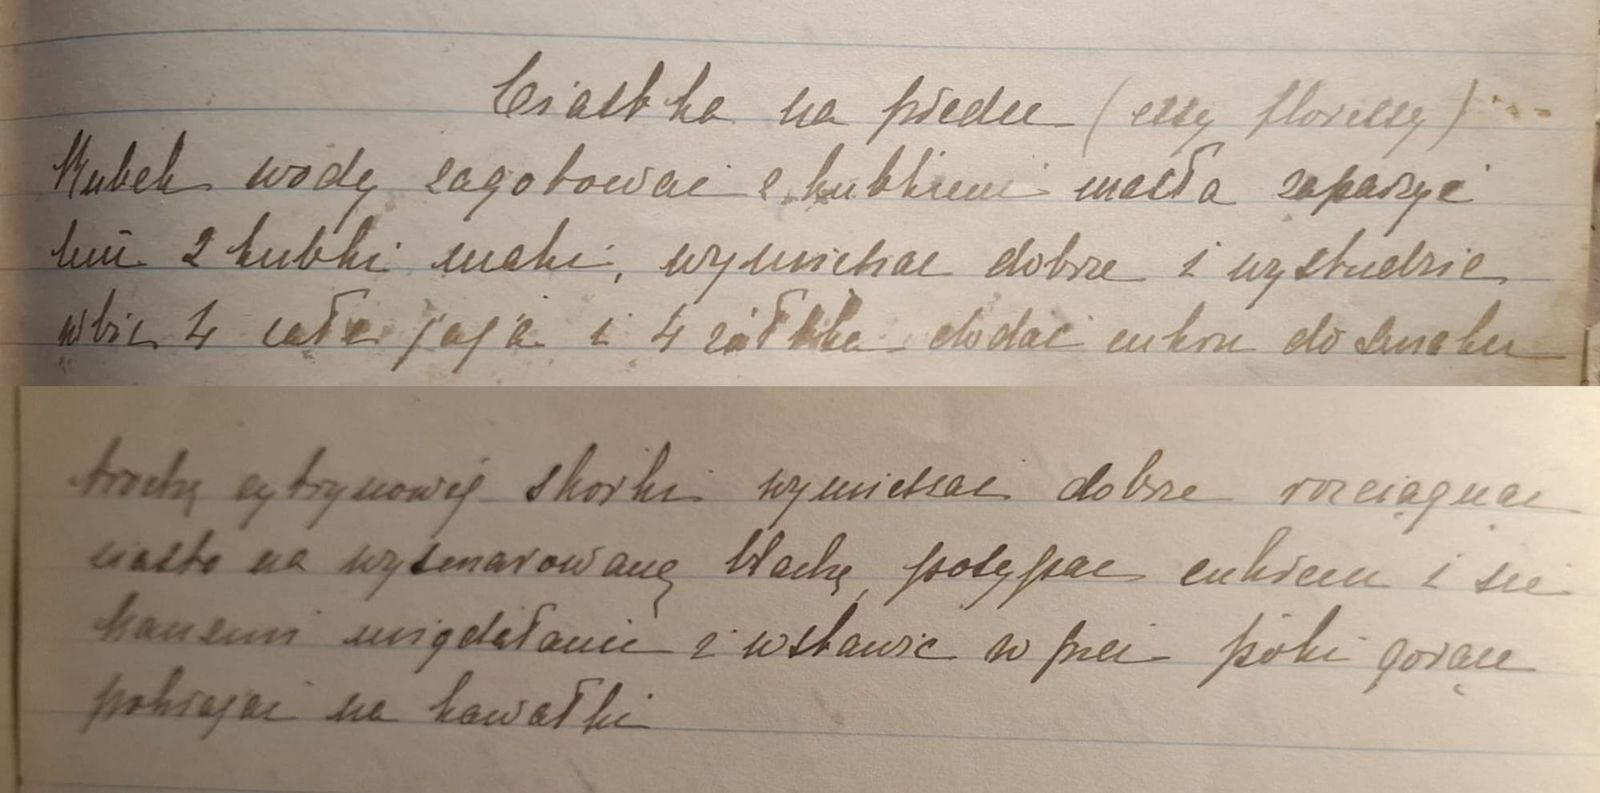 Ciastka na prędce (essy floressy)
Kubek wody zagotować z kubkiem masła zaparzyć
tem 2 kubki mąki, wymieszac dobrze i wystudzic
wbic 4 całe jaja i 4 żółtka dodać cukru do smaku
trochę cytrynowéj skorki wymieszać dobrze rozciągnac
ciasto na wysmarowaną blachę, posypac cukrem i sie
kanemi migdałami i wstawic w piec póki gorące
pokrajać na kawałki